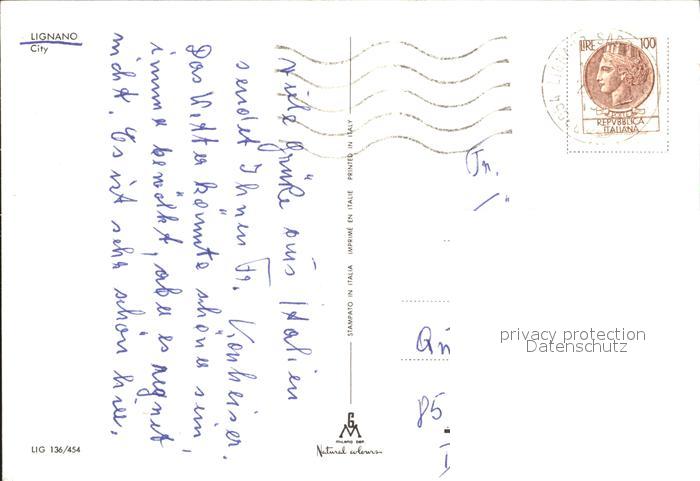 LIGNANO
City
Viele Grüße aus Italien
sendet Ihnen Fr. Konheiser.
Das Wetter könnte schöner sein,
immer bewölkt, aber es regnet
nicht. Es ist sehr schön hier.
LIG 136/454
STAMPATO IN ITALIA IMPRIMÉ EN ITALIE PRINTED IN ITALY
MILANO
Natural colours
LIRE 100
REPVBBLICA
ITALIANA
Fr.
85
privacy protection
Datenschutz